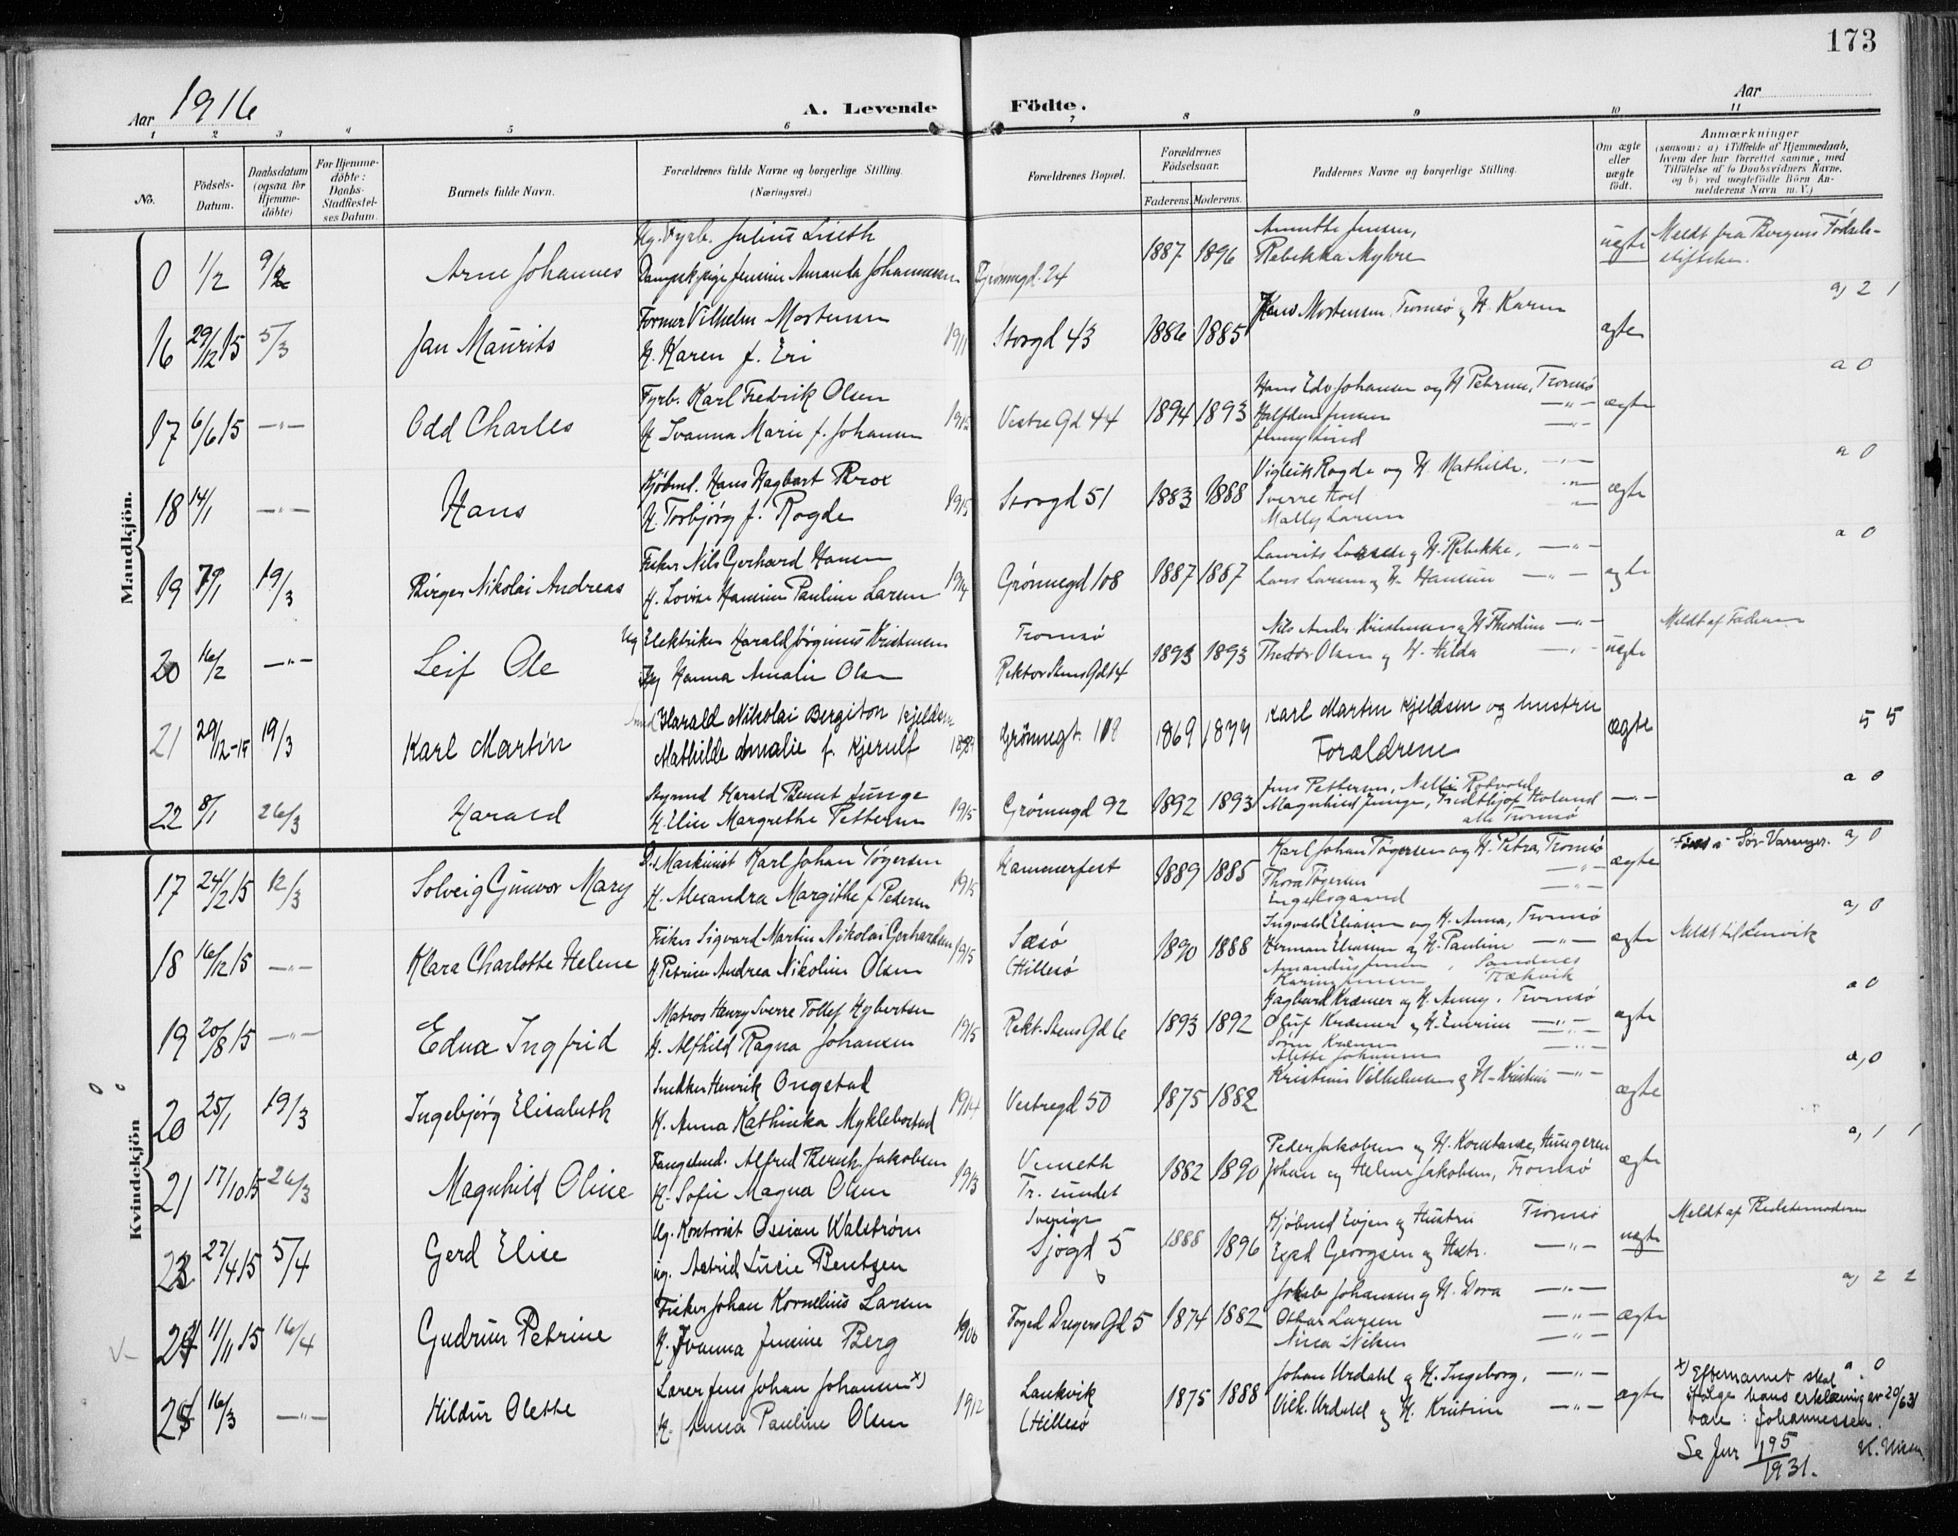 173
Aar 1916
A. Levende Födte.
Aar
1 2 3 4 5 6 7 8 9 10 11
No.
Födsels-Datum.
Daabsdatum (ogsaa for Hjemme-döbte)
For Hjemme-döbte: Daabs-Stadfæstel-ses Datum.
Barnets fulde Navn.
Forældrenes fulde Navne og borgerlige Stilling. (Næringsvei.)
Forældrenes Bopæl.
Forældrenes Födselsaar.
Faderens. Moderens.
Faddernes Navne og borgerlige Stilling.
Om ægte eller uægte födt.
Anmærkninger
(saasom: a) i Tilfælde af Hjemmedaab, hvem der har forrettet samme, med Tilföielse af to Daabsvidners Navne, og b) ved uægtefödte Börn Anmelderens Navn m. V.)
Mandkjön.
Ug. Fyrb. Julius Liseth
0 1/2 9/2 Arne Johannes Amanda Johannessen Grønnegd. 24 1887 1896 Annette Jensen, Rebekka Myhre uægte Meldt fra Bergens Fødselsstiftelse.
Former Vilhelm Mortensen
16 29/12 15 5/3 Jan Maurits H. Karen f. Eri 1911 Storgd 43 1886 1885 Hans Mortensen, Tromsø og H. Karen ægte a) 2 1
Fyrb. Karl Fredrik Olsen
17 6/6 15 -"- Odd Charles H. Ivanna Marie f. Johansen 1915 Vestre Gd 44 1894 1893 Hans Edv. Johansen og H. Petrine, Tromsø
Halfdan Jensen -"-
Jenny Lind -"- ægte a 0
Kjøbmd. Hans Hagbart Brox
18 14/1 -"- Hans H. Torbjørg f. Rogde 1915 Storgd 51 1883 1888 Vigleik Rogde og H. Mathilde. -"-
Sverre Hoel -"-
Mally Larsen -"- ægte a 0
Fisker Nils Gerhard Hansen
19 7/1 19/3 Birger Nikolai Andreas H. Lovise Hansine Pauline Larsen 1914 Grønnegd 108 1887 1887 Laurits Larsen og H. Rebekke, -"-
Lars Larsen og H. Hansine -"- ægte a 0
Ug Elektriker Harald Jørginius Kristensen Tromsø
20 16/2 -"- Leif Ole Ug Hanna Amalie Olsen Rektor Stens Gd 14 1893 1893 Nils Andr. Kristensen og H. Theodine -"-
Theodor Olsen og H. Hilda -"- uægte Meldt af Faderen
Harald Nikolai Bergiton Kjeldsen
21 29/12-15 19/3 Karl Martin Mathilde Amalie f. Kjerulf Grønnegt. 108 1869 1879 Karl Martin Kjeldsen og hustru
Forældrene ægte 5 5
Harald Bernt Junge
22 8/1 26/3 Harald H. Elise Margrethe Pettersen 1915 Grønnegd 92 1892 1893 Jens Pettersen, Nelli Rotvold,
Magnhild Junge, Fridthjof Holand
alle Tromsø -"- a 0
Kvindekjön
Maskinist Karl Johan Tøgersen
17 24/2 15 12/3 Solveig Gunvor Mary H. Alexandra Margithe f Pedersen 1915 Hammerfest 1889 1885 Karl Johan Tøgersen og H. Petra, Tromsø
Thora Tøgersen -"-
Engelsgaard -"- ægte Født i Sør-Varanger. a) 0
Fisker Sigvard Martin Nikolai Gerhardsen
18 16/12 15 -"- Klara Charlotte Helene H. Petrine Andrea Nikoline Olsen 1915 Sæsø (Hillesø 1890 1888 Ingvald Eliasen og H. Anna, Tromsø
Herman Eliasen og H. Pauline -"-
Amandus Jensen, Sandnes
ægte Meldt til Lenvik a) 0
Matros Henry Sverre Tollef Hybertsen
19 20/8 15 -"- Edna Ingfrid H. Alfhild Ragna Johansen 1915 Rekt. Stens Gd 6 1893 1892 Hagbard Kræmer og H. Anny, Tromsø
Oluf Kræmer og H. Emerine -"-
Alette Johannesen -"- ægte a 0
Snedker Henrik Ongstad
20 25/1 19/3 Ingebjørg Elisabeth H. Anna Kathinka Myklebostad 1914 Vestregd 50 1875 1882 Kristine Vilhelmsen og H. Kristine -"- ægte a, 0
Fangstmd. Alfred Bernh. Jakobsen
21 17/10 15 26/3 Magnhild Oline H. Sofie Magna Olsen 1913 Tr. sundet 1882 1890 Peder Jakobsen og H. Konstance, Hungeren
Johan og Helene Jakobsen, Tromsø ægte a, 1 1
Ug. Kontorist Ossian Walstrøm Sverige
23 27/4 15 5/4 Gerd Elise ug. Astrid Lucie Bentzen Sjøgd 5 1888 1896 Kjøbmd Evjen og Hustru Tromsø
Georgsen og Hustr. -"- uægte Meldt af Bedstemoderen
Fisker Johan Kornelius Larsen
24 11/11 15 16/4 Gudrun Petrine H. Ivanna Jensine Berg 1906 Foged Dreyers Gd 5 1874 1882 Jakob Johansen og H. Dora -"-
Othar Larsen -"-
Nina Nilsen -"- ægte a) 2 2
Lærer Jens Johan Johansen x)
25 16/3 -"- Hildur Olette H. Anna Pauline Olsen 1912 Lankvik (Hillesø 1875 1888 Johan Urdahl og H. Ingeborg, -"-
Vilh. Urdahl og H. Kristine -"- ægte a 0
x) Efternavnet skal
ifølge hans erklæring av 20/6 31
være: Johannessen.
Se Jnr 195/1931. K. Nissen